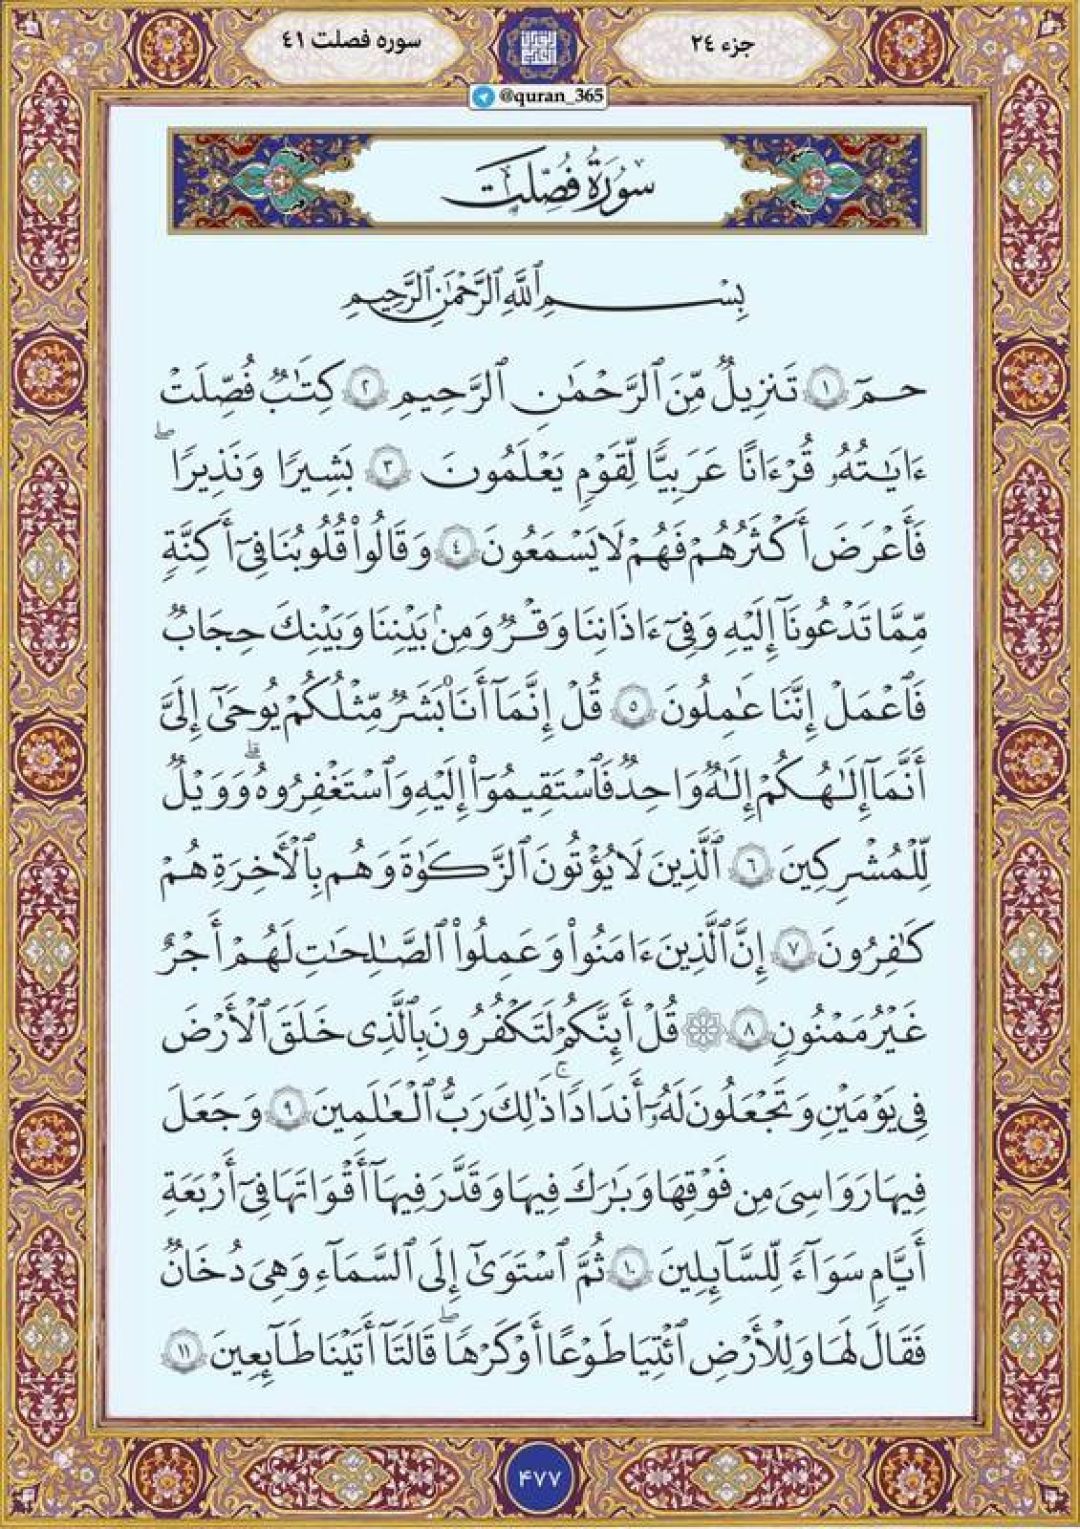 جزء ۲۴
سوره فصلت ۴۱
@quran_365
سُورَةُ فُصِّلَتْ
بِسْمِ ٱللَّهِ ٱلرَّحْمَٰنِ ٱلرَّحِيمِ
حمٓ ١ تَنزِيلٌ مِّنَ ٱلرَّحْمَٰنِ ٱلرَّحِيمِ ٢ كِتَٰبٌ فُصِّلَتْ
ءَايَٰتُهُۥ قُرْءَانًا عَرَبِيًّا لِّقَوْمٍ يَعْلَمُونَ ٣ بَشِيرًا وَنَذِيرًا ۖ
فَأَعْرَضَ أَكْثَرُهُمْ فَهُمْ لَا يَسْمَعُونَ ٤ وَقَالُوا۟ قُلُوبُنَا فِىٓ أَكِنَّةٍ
مِّمَّا تَدْعُونَآ إِلَيْهِ وَفِىٓ ءَاذَانِنَا وَقْرٌ وَمِنۢ بَيْنِنَا وَبَيْنِكَ حِجَابٌ
فَٱعْمَلْ إِنَّنَا عَٰمِلُونَ ٥ قُلْ إِنَّمَآ أَنَا۠ بَشَرٌ مِّثْلُكُمْ يُوحَىٰٓ إِلَىَّ
أَنَّمَآ إِلَٰهُكُمْ إِلَٰهٌ وَٰحِدٌ فَٱسْتَقِيمُوٓا۟ إِلَيْهِ وَٱسْتَغْفِرُوهُ ۗ وَوَيْلٌ
لِّلْمُشْرِكِينَ ٦ ٱلَّذِينَ لَا يُؤْتُونَ ٱلزَّكَوٰةَ وَهُم بِٱلْأَخِرَةِ هُمْ
كَٰفِرُونَ ٧ إِنَّ ٱلَّذِينَ ءَامَنُوا۟ وَعَمِلُوا۟ ٱلصَّٰلِحَٰتِ لَهُمْ أَجْرٌ
غَيْرُ مَمْنُونٍ ٨ ۞ قُلْ أَئِنَّكُمْ لَتَكْفُرُونَ بِٱلَّذِى خَلَقَ ٱلْأَرْضَ
فِى يَوْمَيْنِ وَتَجْعَلُونَ لَهُۥٓ أَندَادًا ۚ ذَٰلِكَ رَبُّ ٱلْعَٰلَمِينَ ٩ وَجَعَلَ
فِيهَا رَوَٰسِىَ مِن فَوْقِهَا وَبَٰرَكَ فِيهَا وَقَدَّرَ فِيهَآ أَقْوَٰتَهَا فِىٓ أَرْبَعَةِ
أَيَّامٍ سَوَآءً لِّلسَّآئِلِينَ ١٠ ثُمَّ ٱسْتَوَىٰٓ إِلَى ٱلسَّمَآءِ وَهِىَ دُخَانٌ
فَقَالَ لَهَا وَلِلْأَرْضِ ٱئْتِيَا طَوْعًا أَوْ كَرْهًا ۖ قَالَتَآ أَتَيْنَا طَآئِعِينَ ١١
۴۷۷